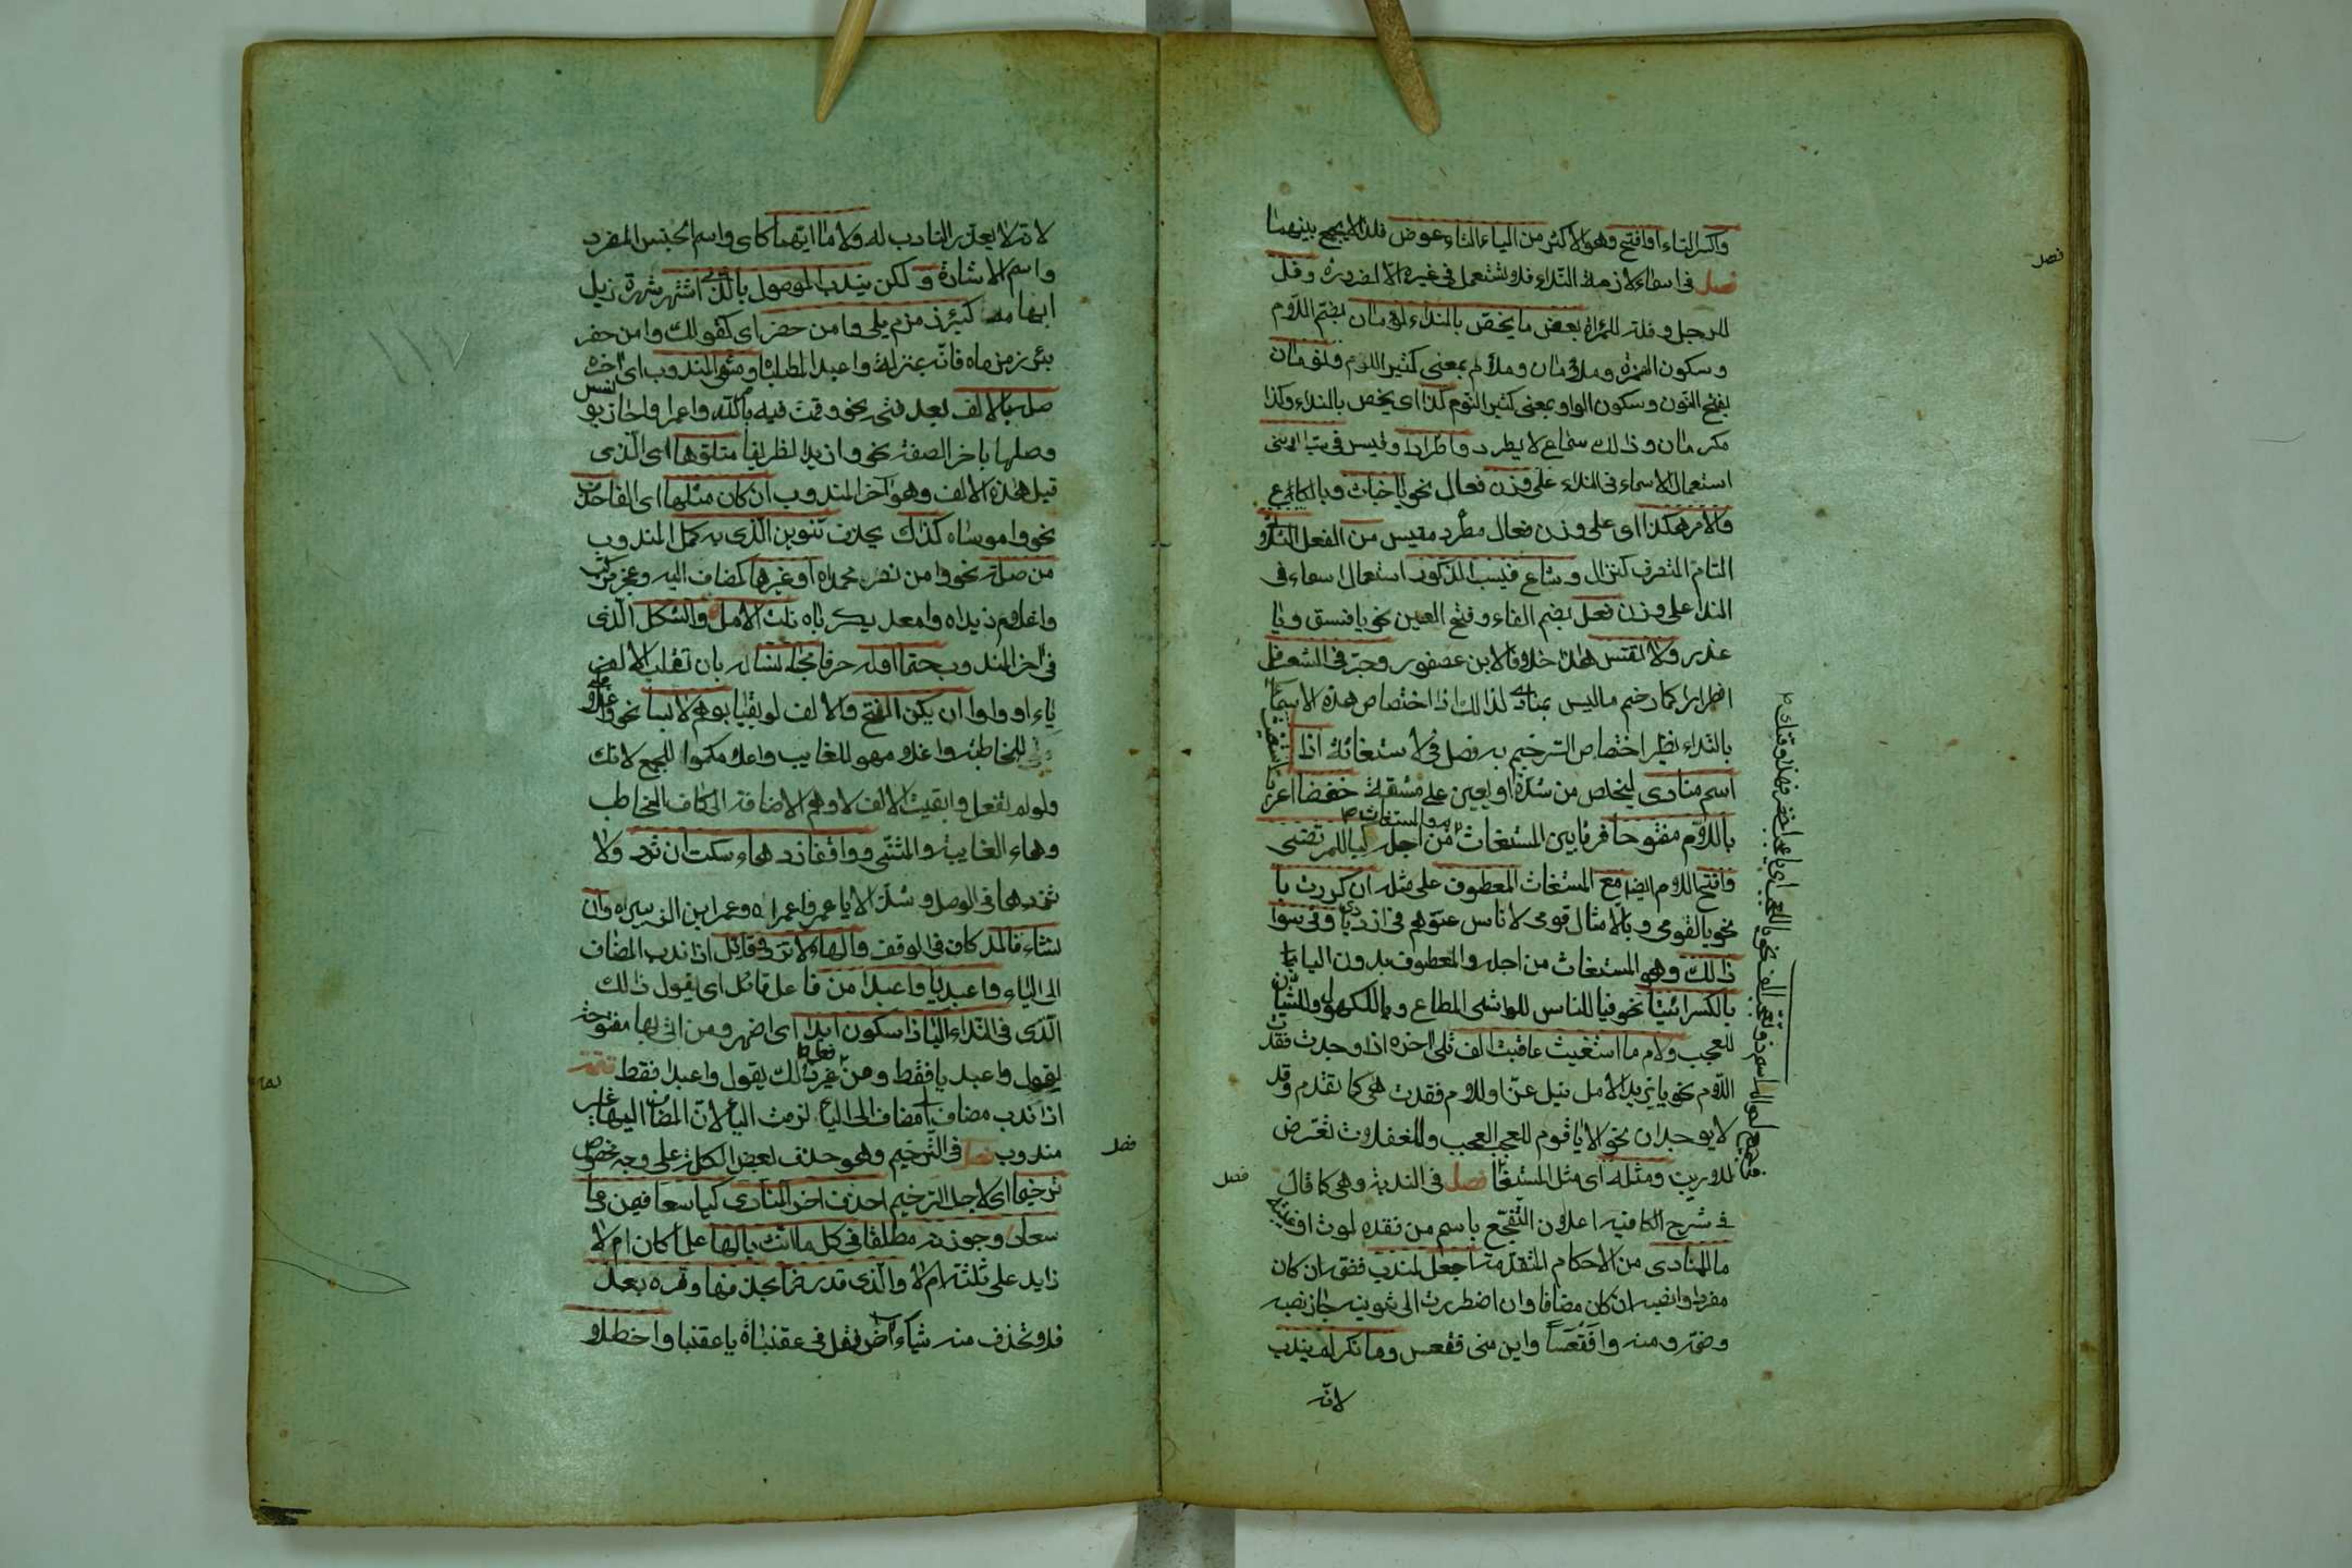 واكسر التاء او افتح وهو الاكثر من الياء التاء عوض فلذا لا يجمع بينهما
فصل فى اسماء لازمت النداء فلا تستعمل فى غيره الا لضرورة وفل
للرجل وفلة للمراة بعض ما يخص بالنداء لؤمان بضم اللام
وسكون الهمزة وملأمان وملأم بمعنى كثير اللوم ونومان
بفتح النون وسكون الواو بمعنى كثير النوم كذا اى يخص بالنداء وكذا
مكرمان وذلك سماع لا يطرد واطردا وقيس فى سب الانثى
استعمال الاسماء فى النداء على وزن فعال نحو يا خباث ويا لكاع
والامر هكذا اى على وزن فعال مطرد مقيس من الفعل الثلاثى
التام المتصرف كنزال وشاع فى سب الذكور استعمال اسماء فى
النداء على وزن فعل بضم الفاء وفتح العين نحو يا فسق ويا
غدر ولا تقس هذا خلافا لابن عصفور وجر فى الشعر فل
اضطرارا كما رخم ما ليس بمنادى لذلك اذ اختصاص هذه الاسماء
بالنداء نظير اختصاص الترخيم به فصل فى الاستغاثة اذا استغيث
اسم منادى ليخلص من شدة او يعين على مشقة خفضا اعرب
باللام مفتوحا فرقا بين المستغاث به والمستغاث من اجله كيا للمرتضى
وافتح اللام ايضا مع المستغاث المعطوف على مثله ان كررت يا
نحو يا لقومى ويا لامثال قومى لاناس عتوهم فى ازدياد وفى سوى
ذلك وهو المستغاث من اجله والمعطوف بدون الياء
بالكسر ائتيا نحو فيا للناس للواشى المطاع ويا للكهول وللشبان
للعجب ولام ما استغيث عاقبت الف تلى اخره اذا وجدت فقدت
اللام نحو يا يزيدا لآمل نيل عز واللام فقدت هى كما تقدم وقد
لا يوجدان نحو الا يا قوم للعجب العجيب وللغفلات تعرض
للاريب ومثله اى مثل المستغاث
اسم ذو تعجب الف نحو يا للعجب
فصل فى الندبة وهى كما قال
فى شرح الكافية اعلان المتفجع باسم من فقده لموت او غيبة
ما للمنادى من الاحكام المتقدمة اجعل لمندوب فضمه ان كان
مفردا وانصبه ان كان مضافا وان اضطررت الى تنوينه جاز نصبه
وضمه ومنه وا فقعسا واين منى فقعس وما نكر لم يندب
لانه
فصل
فصل
لانه لا يعذر النادب له ولا ما ابهما كاى واسم الجنس المفرد
واسم الاشارة ولكن يندب الموصول بالذى اشتهر شهرة تزيل
ابهامه كبئر زمزم يلى وا من حفر اى كقولك وا من حفر
بئر زمزماه فانه بمنزلة وا عبد المطلباه ومنتهى المندوب اى اخره
صله بالالف بعد فتحه نحو وقمت فيه بامر الله وا عمرا واجاز يونس
وصلها باخر الصفة نحو وا زيد الظريفا متلوها اى الذى
قبل هذه الالف وهو آخر المندوب ان كان مثلها اى الفا حذف
نحو وا موساه كذاك يحذف تنوين الذى به كمل المندوب
من صلة نحو وا من نصر محمداه او غيرها كمضاف اليه وعجز مركب
وا غلام زيداه وا معد يكرباه نلت الامل والشكل الذى
فى اخر المندوب حتما اوله حرفا مجانسا له بان تقلب الالف
ياء او واوا ان يكن الفتح والالف لو بقيا بوهم لابسا نحو وا غلامكى
للمخاطبة وا غلامهو للغايب وا غلامكموا للجمع لانك
ولو لم تفعل وابقيت الالف لاوهم الاضافة الى كاف المخاطب
وهاء الغايبة والمثنى وواقفا زد هاء سكت ان ترد ولا
تزدها فى الوصل وشذ الا يا عمرو عمراه وعمرو ابن الزبيراه وان
تشاء فالمد كاف فى الوقف والهاء لا تزد وقائل اذا ندب المضاف
الى الياء وا عبديا وا عبدا من فاعل قائل اى يقول ذلك
الذى فى النداء اليا ذا سكون ابدا اى اظهر ومن اتى بها مفتوحة
يقول وا عبديا فقط ومن غير ذلك يقول وا عبدا فقط تتمة
اذا ندب مضاف مضاف الى الياء لزمت الياء لان المضاف اليها غير
مندوب فصل فى الترخيم وهو حذف بعض الكلمة على وجه مخصوص
ترخيما اى لاجل الترخيم احذف اخر المنادى كيا سعا فيمن دعا
سعاد وجوزنه مطلقا فى كل ما انث بالها علما كان ام لا
زايد على ثلثة ام لا والذى قد رخما بحذفها وفره بعد
فلا تحذف منه شياء اخر فقل فى عقنباة يا عقنبا واحظلا
فصل